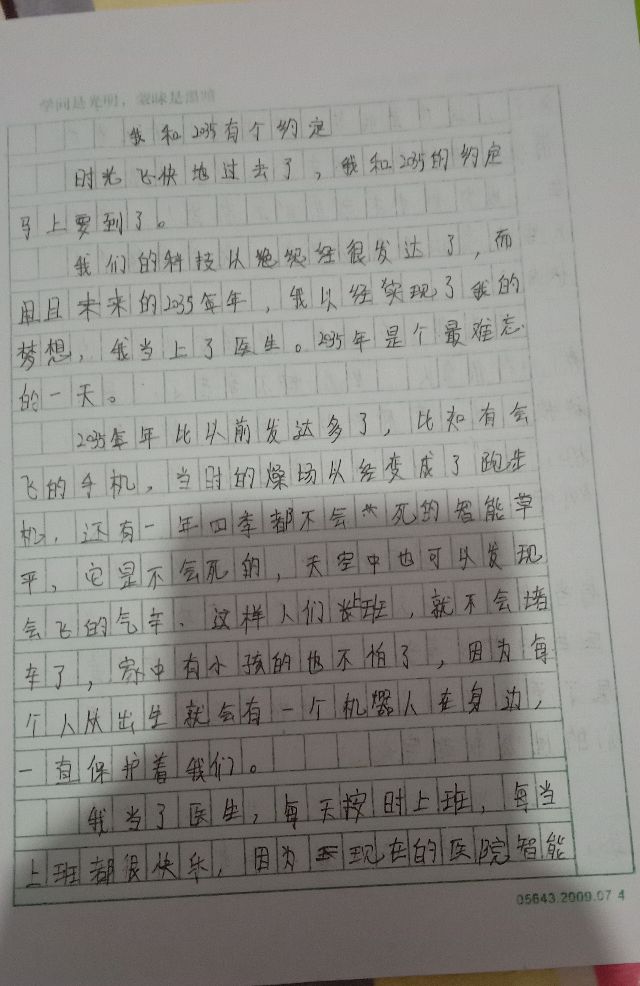 学问是光明，蒙昧是黑暗
我和2035有个约定
时光飞快地过去了，我和2035的约定
马上要到了。
我们的科技以绝经很发达了，而
且且未来的2035年年，我以经实现了我的
梦想，我当上了医生。2035年是个最难忘
的一天。
2035年年比以前发达多了，比如有会
飞的手机，当时的燥场以经变成了跑步
机，还有一年四季都不会死的智能草
平，它是不会死的，天空中也可以发现
会飞的气车、这样人们上班，就不会堵
车了，家中有小孩的也不怕了，因为每
个人从出生就会有一个机器人在身边，
一直保护着我们。
我当了医生，每天按时上班，每当
上班都很快乐，因为现在的医院智能
05643.2009.07 4